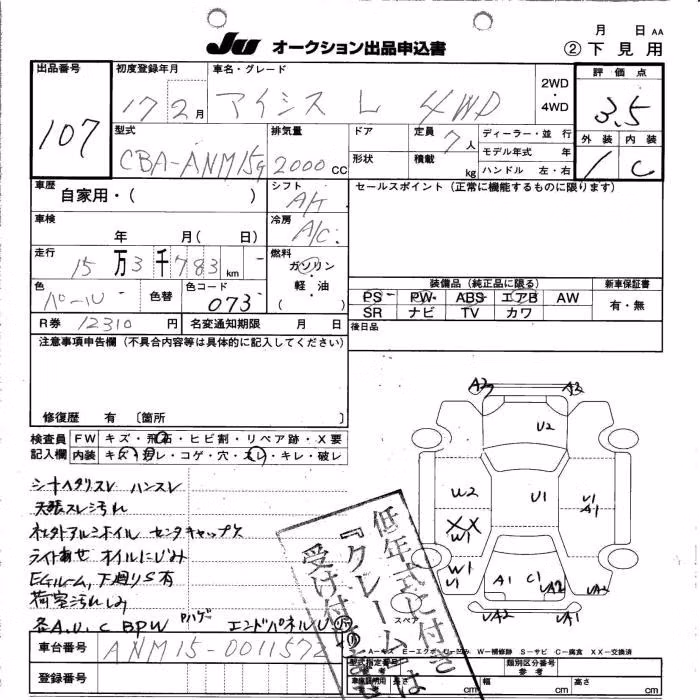 月 日 AA
JU オークション出品申込書 ② 下見用
出品番号 初度登録年月 車名・グレード 2WD・4WD 評価点
107 17 2月 アイシス L 4WD 3.5
型式 排気量 ドア 定員 7人 ディーラー・並行 外装 内装
CBA-ANM15G 2000CC 形状 積載 kg モデル年式 年 / C
ハンドル 左・右
車歴 自家用・( ) シフト A/T セールスポイント (正常に機能するものに限ります)
車検 年 月( 日) 冷房 A/C
走行 15万3千783km 燃料 ガソリン・軽油
色 パール 色替 色コード 073 装備品 (純正品に限る) 新車保証書
PS PW ABS エアB AW 有・無
SR ナビ TV カワ
R券 12310円 名変通知期限 月 日 後日品
注意事項申告欄 (不具合内容等は具体的に記入してください)
修復歴 有 〔箇所 〕
検査員 FW キズ・飛石・ヒビ割・リペア跡・X要
記入欄 内装 キズ・汚レ・コゲ・穴・スレ・キレ・破レ
シートヘタリスレ ハンスレ
天張スレ汚れ
社外アルミホイル センタキャップ欠
ライトあせ オイルにじみ
EGルーム、下廻りS有
荷室汚れしみ
各A.U.C BPW Pハゲ エンドパネルU
A2 A2
U2
W2 U1 U1 A1
XX W1
W1 U1 A1 C1 UA2 UA2
UA2 UA1
スペア
低年式に付き
『クレームは
受け付
A-キズ E-エクボ U-凹み W-補修跡 S-サビ C-腐食 XX-交換済
車台番号 ANM15-0011572 型式指定番号 参考 類別区分番号 参考
出品番号 車庫証明用 長さ cm 幅 cm 高さ cm